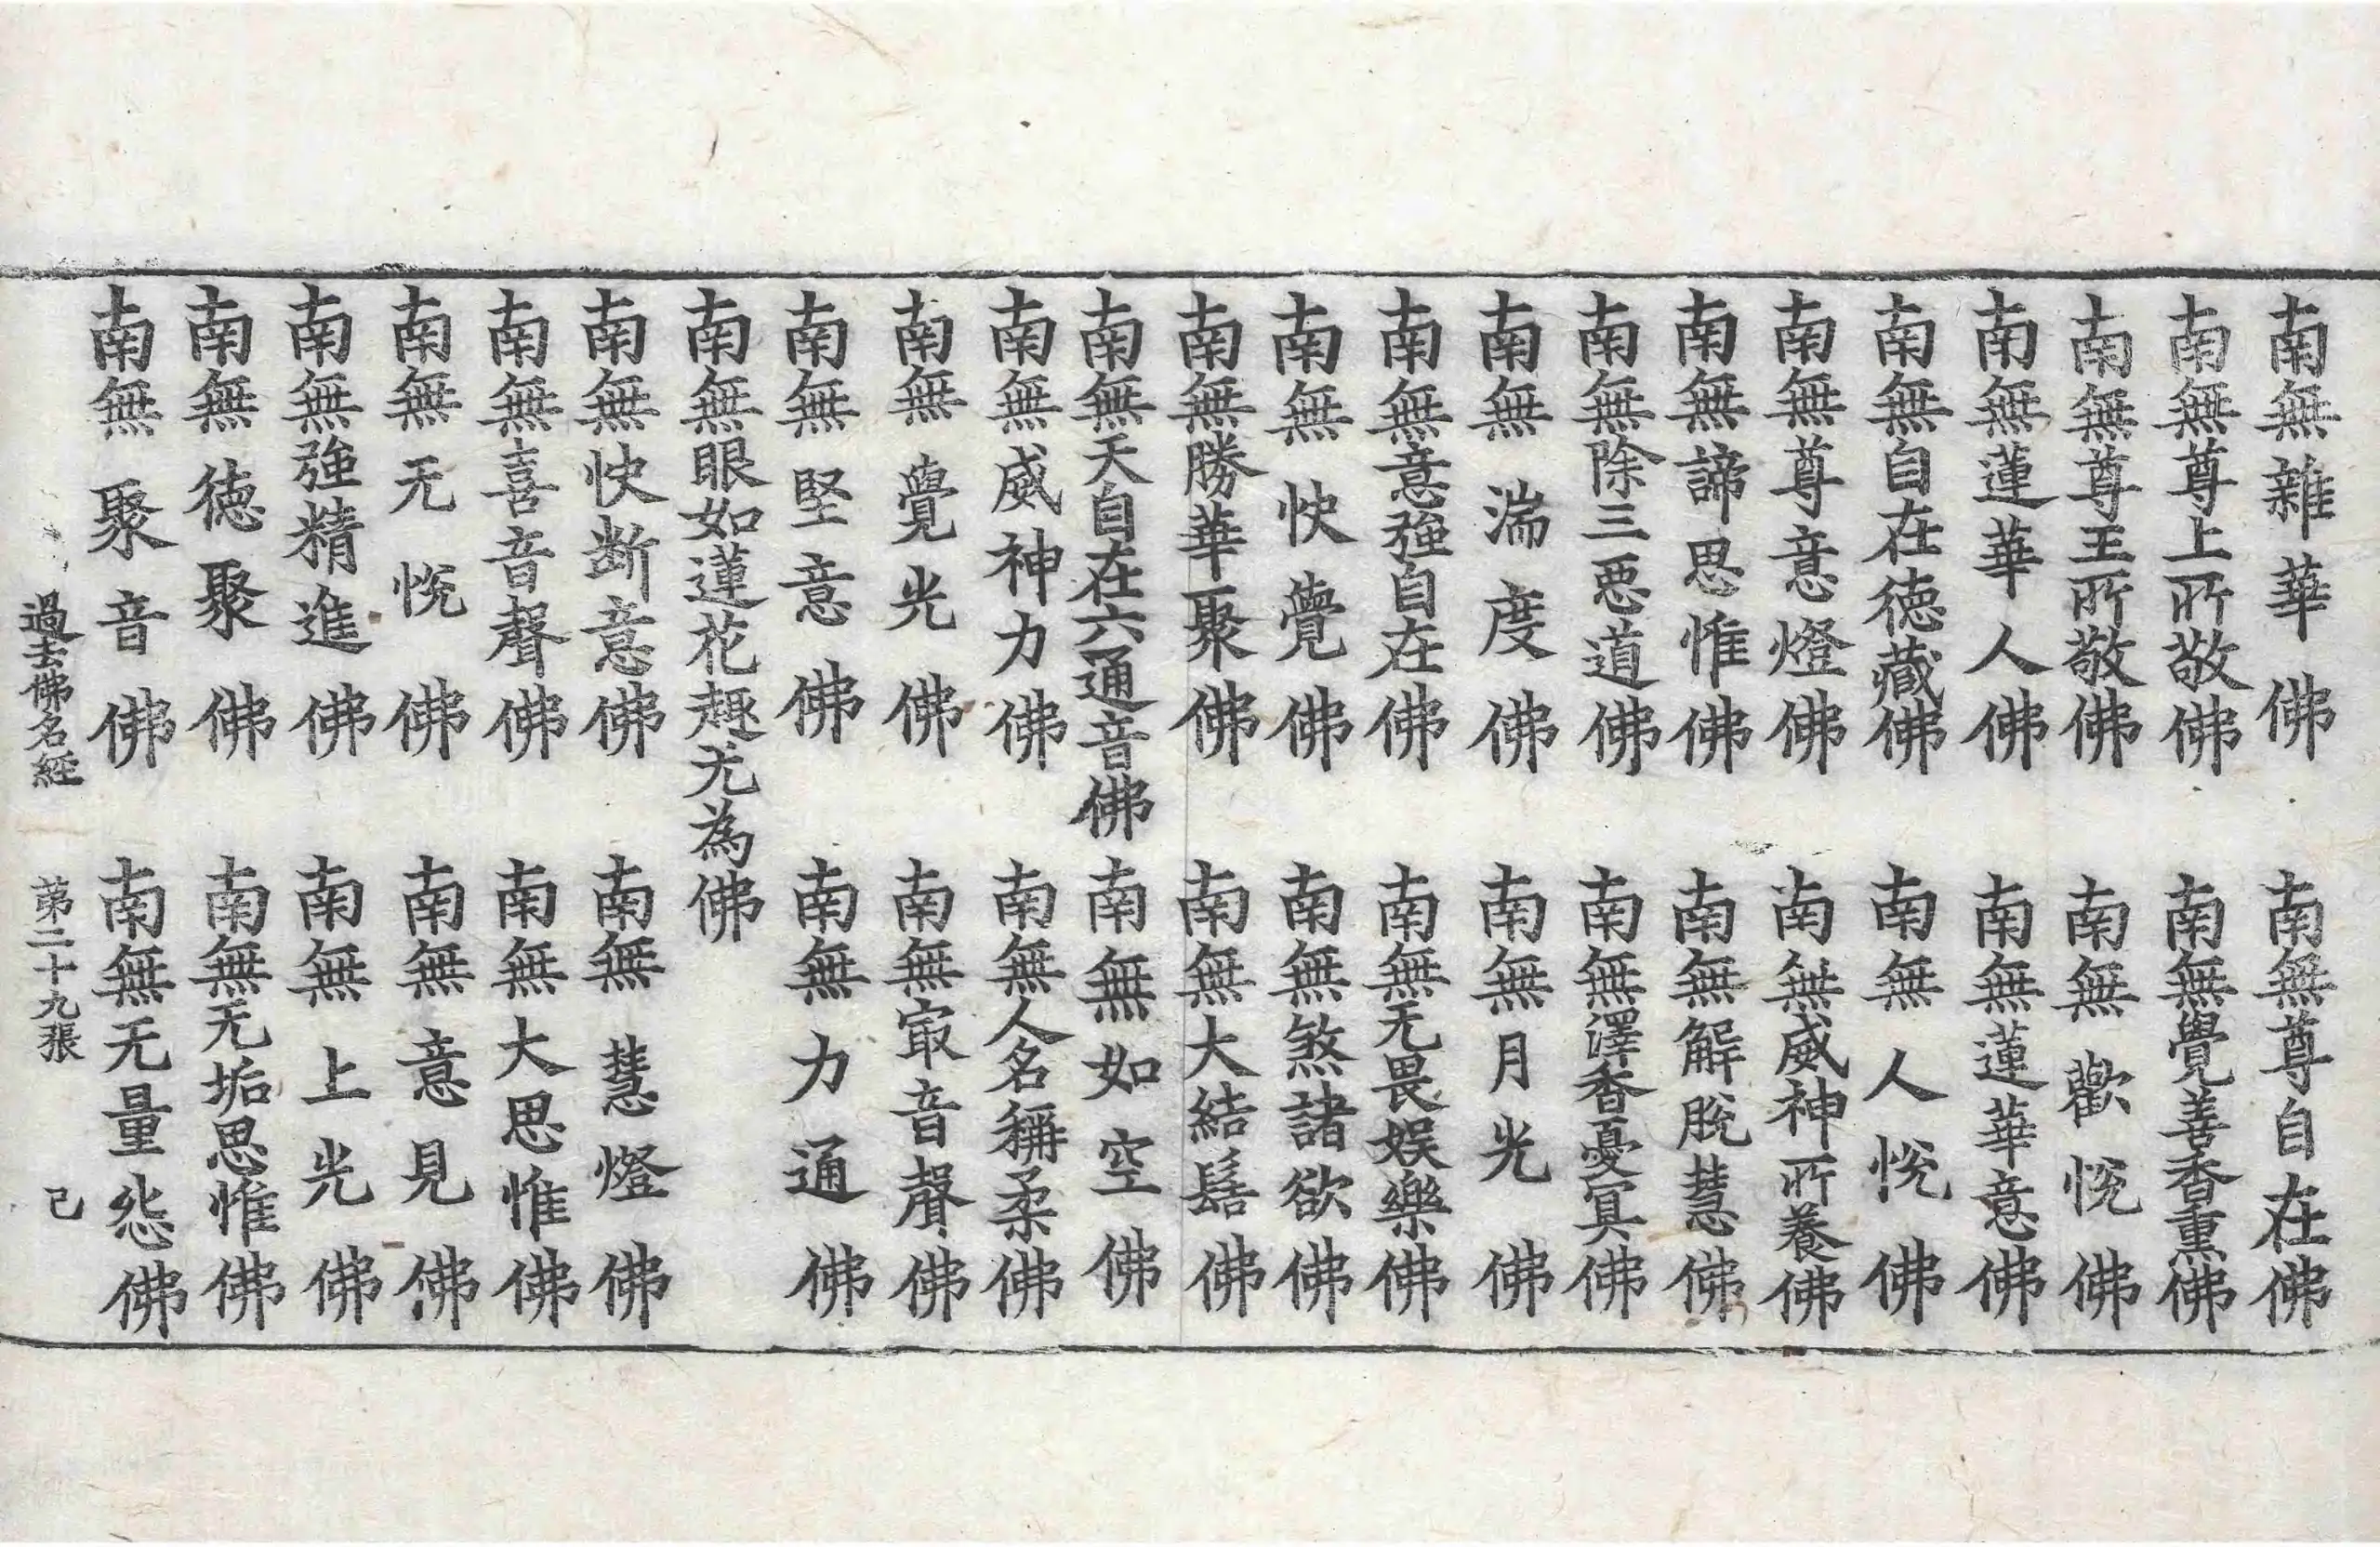 南無雜華佛　南無尊自在佛
南無尊上所敬佛　南無覺善香熏佛
南無尊王所敬佛　南無歡悅佛
南無蓮華人佛　南無蓮華意佛
南無自在德藏佛　南無人悅佛
南無尊意燈佛　南無威神所養佛
南無諦思惟佛　南無解脫慧佛
南無除三惡道佛　南無澤香憂冥佛
南無湍度佛　南無月光佛
南無意強自在佛　南無无畏娛樂佛
南無快覺佛　南無煞諸欲佛
南無勝華聚佛　南無大結髻佛
南無天自在六通音佛　南無如空佛
南無威神力佛　南無人名稱柔佛
南無覺光佛　南無㝡音聲佛
南無堅意佛　南無力通佛
南無眼如蓮花趣无為佛
南無快断意佛　南無慧燈佛
南無喜音聲佛　南無大思惟佛
南無无悅佛　南無意見佛
南無強精進佛　南無上光佛
南無德聚佛　南無无垢思惟佛
南無聚音佛　南無无量怨佛
過去佛名經　苐二十九張　己